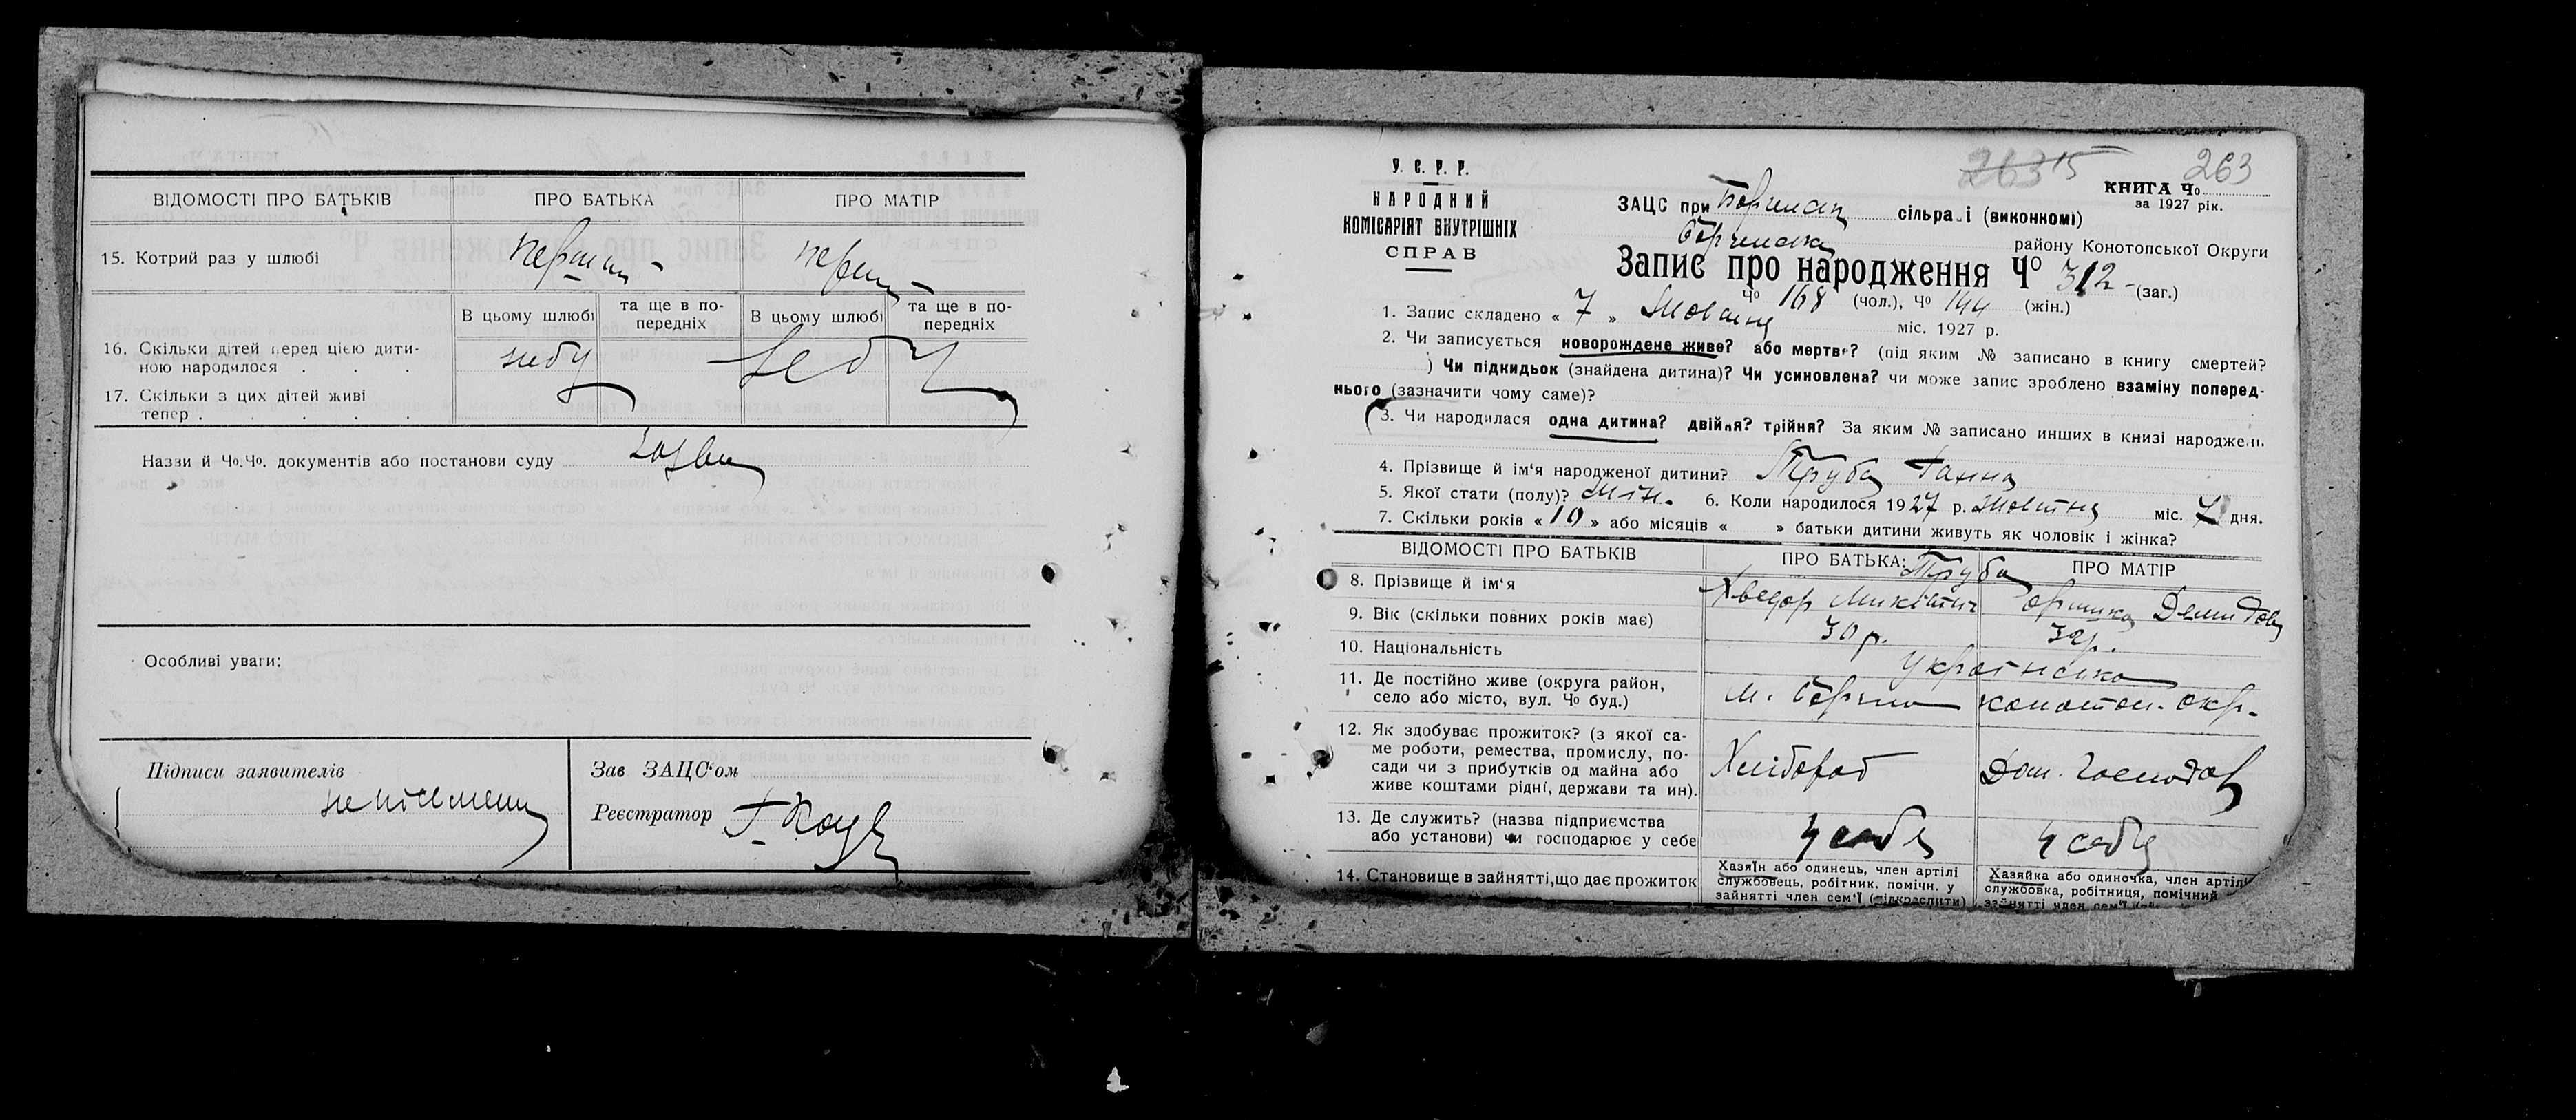 ВІДОМОСТІ ПРО БАТЬКІВ ПРО БАТЬКА ПРО МАТІР
15. Котрий раз у шлюбі
В цьому шлюбі та ще в по-передніх В цьому шлюбі та ще в по-передніх
16. Скільки дітей перед цією дити-
ною народилося . . .
17. Скільки з цих дітей живі
тепер . . . . .
Назви й Чо.Чо. документів або постанови суду
Особливі уваги:
Підписи заявителів
неписьмени
Зав ЗАЦС'ом
Реєстратор
263
У. С. Р. Р.
НАРОДНИЙ
КОМІСАРІЯТ ВНУТРІШНІХ
СПРАВ
КНИГА Чо
за 1927 рік.
ЗАЦС при сільраді (виконкомі)
району Конотопської Округи
Запис про народження Чо 312 (заг.)
Чо 168 (чол.), Чо 144 (жін.)
1. Запис складено « 7 » Жовтня міс. 1927 р.
2. Чи записується новорождене живе? або мертве? (під яким № записано в книгу смертей?
) Чи підкидьок (знайдена дитина)? Чи усиновлена? чи може запис зроблено взаміну поперед-
нього (зазначити чому саме)?
3. Чи народилася одна дитина? двійня? трійня? За яким № записано инших в книзі народжен.
4. Прізвище й ім'я народженої дитини? Труба Ганна
5. Якої стати (полу)? жін. 6. Коли народилося 1927 р. Жовтня міс. дня.
7. Скільки років « 10 » або місяців « » батьки дитини живуть як чоловік і жінка?
ВІДОМОСТІ ПРО БАТЬКІВ ПРО БАТЬКА: ПРО МАТІР
Труба
8. Прізвище й ім'я Хведор Микитич Оришка Демидов
9. Вік (скільки повних років має) 30 р.
10. Національність Українська
11. Де постійно живе (округа район,
село або місто, вул. Чо буд.) м. Борзна Конотоп. окр.
12. Як здобуває прожиток? (з якої са-
ме роботи, ремества, промислу, по-
сади чи з прибутків од майна або
живе коштами рідні, держави та ин).
Хлібороб Дом. господар
13. Де служить? (назва підприємства
або установи) чи господарює у себе
у себе у себе
14. Становище в зайнятті, що дає прожиток
Хазяїн або одинець, член артілі
службовець, робітник. помічн. у
зайнятті член сем'ї (підкреслити)
Хазяйка або одиночка, член артілі
службовка, робітниця, помічний
зайнятті член сем'ї